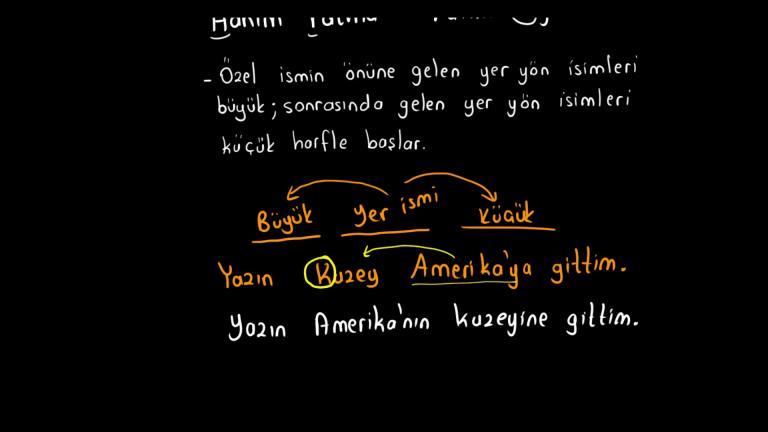 - Özel ismin önüne gelen yer yön isimleri
büyük; sonrasında gelen yer yön isimleri
küçük harfle başlar.
Büyük yer ismi küçük
Yazın Kuzey Amerika'ya gittim.
Yazın Amerika'nın kuzeyine gittim.